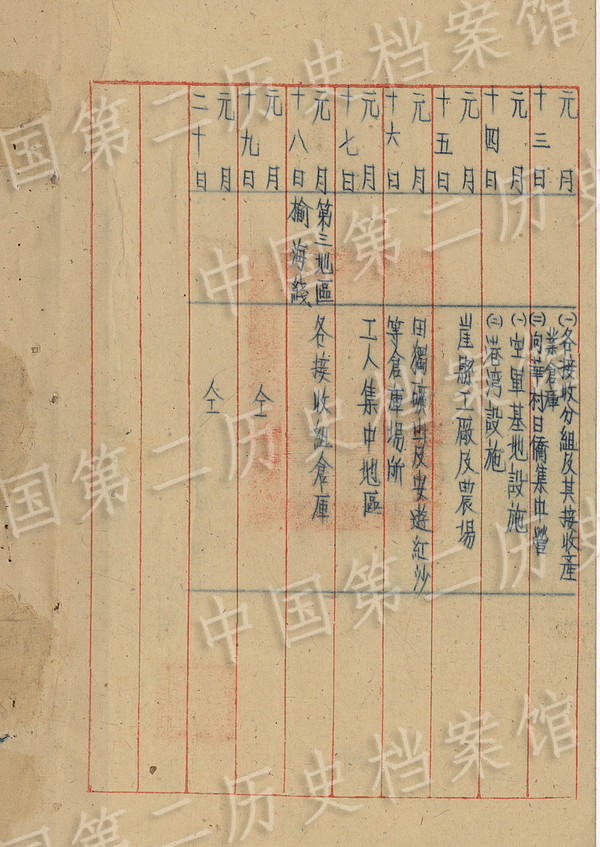 元月
十三日
㈠各接收分組及其接收產
業倉庫
㈡向華村日僑集中營
元月
十四日
㈠空軍基地設施
㈡港湾設施
元月
十五日
崖縣工廠及農場
元月
十六日
田獨礦山及安遊紅沙
等倉庫場所
元月
十七日
工人集中地區
元月
十八日
第三地區
榆海綫
各接收組倉庫
元月
十九日
仝
元月
二十日
仝
国第二历史档案馆
中国第二历史
国第二历史档案馆
中国第二历史
国第二历史档案馆